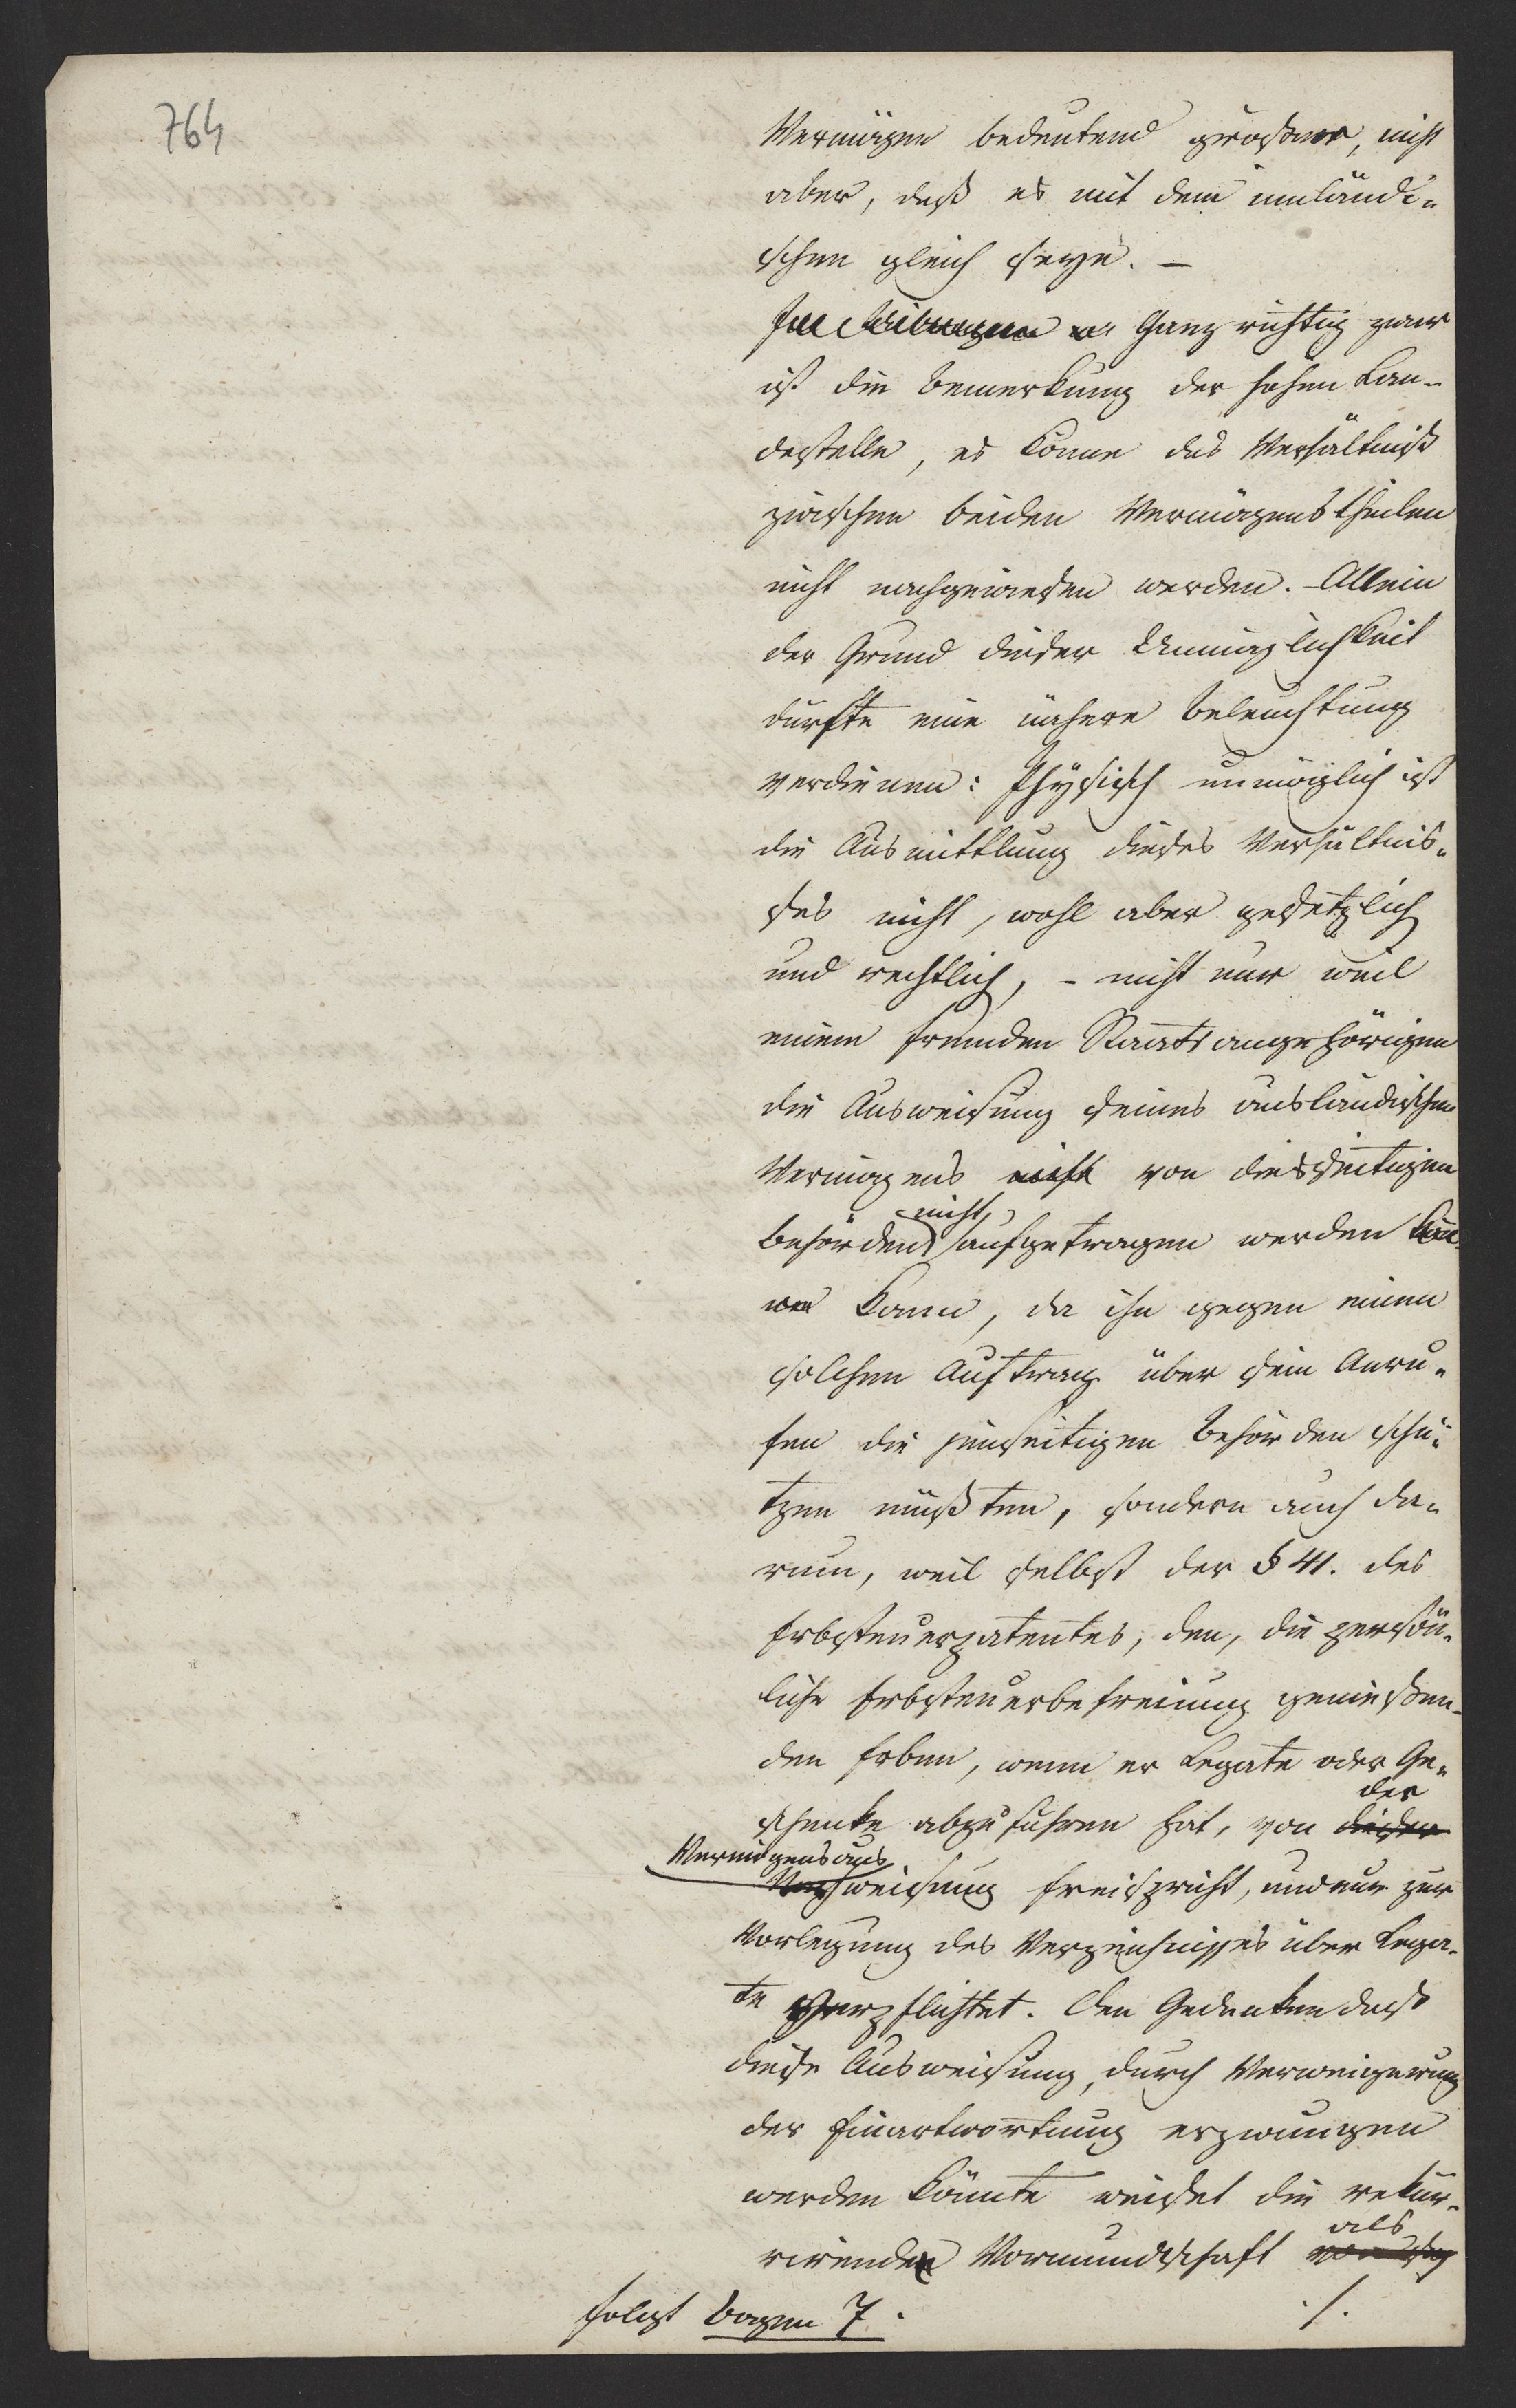 764
Vermögen bedeutend größer, nicht
aber, daß es mit dem inländi-
schen gleich seye. –
Im Übrigen Ganz richtig zwar
ist die Bemerkung der hohen Lan-
desstelle, es könne das Verhältniß
zwischen beiden Vermögenstheilen
nicht nachgewiesen werden. – Allein
der Grund dieser Unmöglichkeit
dürfte eine nähere Beleuchtung
verdienen: Physisch unmöglich ist
die Ausmittlung dieses Verhältnis-
ses nicht, wohl aber gesetzlich
und rechtlich, – nicht nur weil
einem fremden Staatsangehörigen
die Ausweisung seines ausländischen
Vermögens nicht von diesseitigen
nicht
Behörden aufgetragen werden kön-
nen kann, da ihn gegen einen
solchen Auftrag über sein Anru-
fen die jenseitigen Behörden schü-
tzen müßten, sondern auch da-
rum, weil selbst der § 41. des
Erbsteuerpatentes, den, die persön-
liche Erbsteuerbefreiung genießen-
den Erben, wenn er Legate oder Ge-
der
schenke abzuführen hat, von dieser
Vermögensaus
weisung freispricht, und nur zur
Vorlegung des Verzeichnisses über Lega-
te verpflichtet. Den Gedanken daß
diese Ausweisung, durch Verweigerung
der Einantwortung erzwungen
werden könnte weiset die rekur-
als
rirende Vormundschaft
folgt Bogen 7. ./.